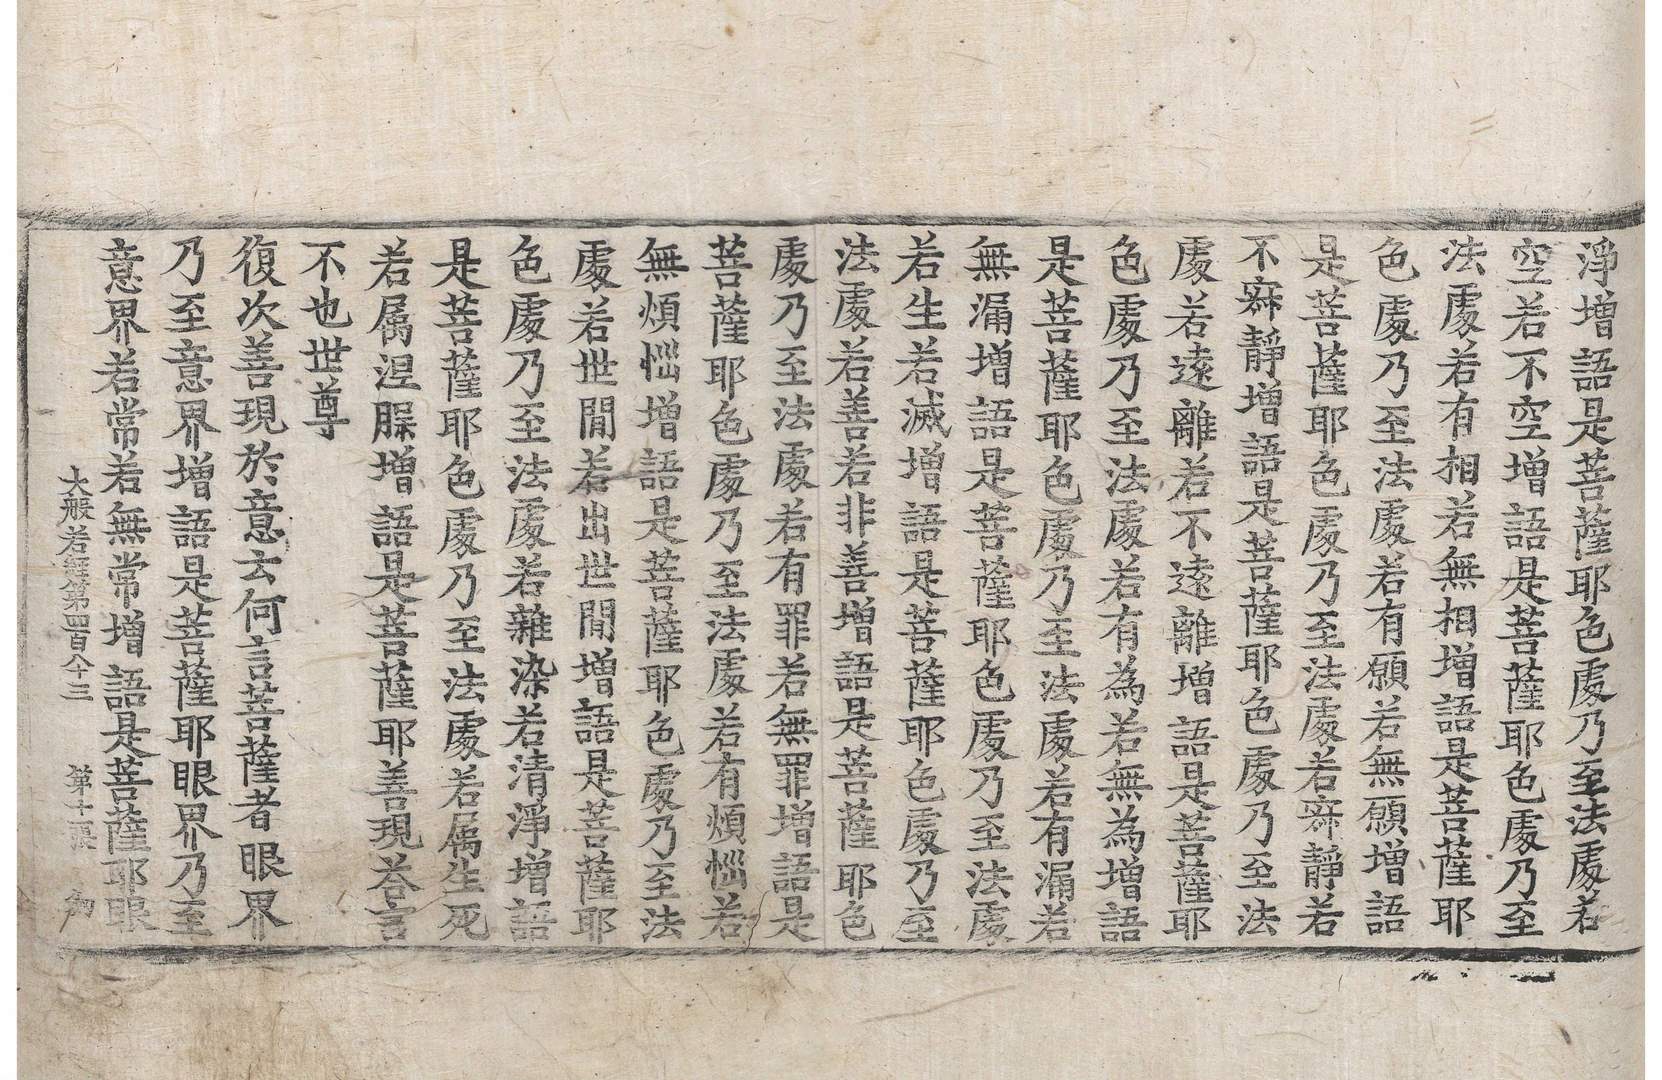 淨增語是菩薩耶色處乃至法處若
空若不空增語是菩薩耶色處乃至
法處若有相若無相增語是菩薩耶
色處乃至法處若有願若無願增語
是菩薩耶色處乃至法處若寂靜若
不寂靜增語是菩薩耶色處乃至法
處若遠離若不遠離增語是菩薩耶
色處乃至法處若有為若無為增語
是菩薩耶色處乃至法處若有漏若
無漏增語是菩薩耶色處乃至法處
若生若滅增語是菩薩耶色處乃至
法處若善若非善增語是菩薩耶色
處乃至法處若有罪若無罪增語是
菩薩耶色處乃至法處若有煩惱若
無煩惱增語是菩薩耶色處乃至法
處若世閒若出世閒增語是菩薩耶
色處乃至法處若雜染若清淨增語
是菩薩耶色處乃至法處若属生死
若属涅槃增語是菩薩耶善現答言
不也世尊
復次善現於意云何言菩薩者眼界
乃至意界增語是菩薩耶眼界乃至
意界若常若無常增語是菩薩耶眼
大般若經第四百八十三 第十二張